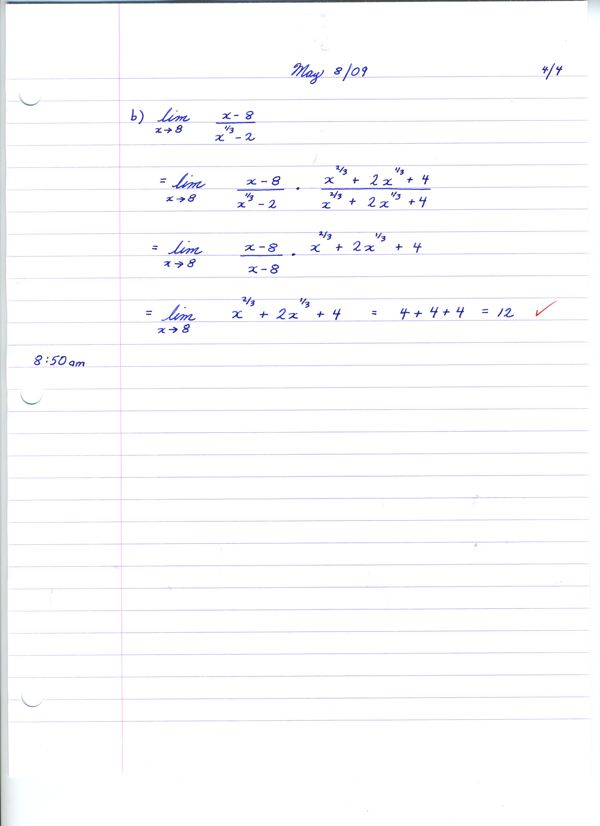 May 8/09 4/4
b) lim x→8 x-8 / x^1/3 - 2
= lim x→8 x-8 / x^1/3 - 2 · x^2/3 + 2x^1/3 + 4 / x^2/3 + 2x^1/3 + 4
= lim x→8 x-8 / x-8 · x^2/3 + 2x^1/3 + 4
= lim x→8 x^2/3 + 2x^1/3 + 4 = 4 + 4 + 4 = 12 ✓
8:50am